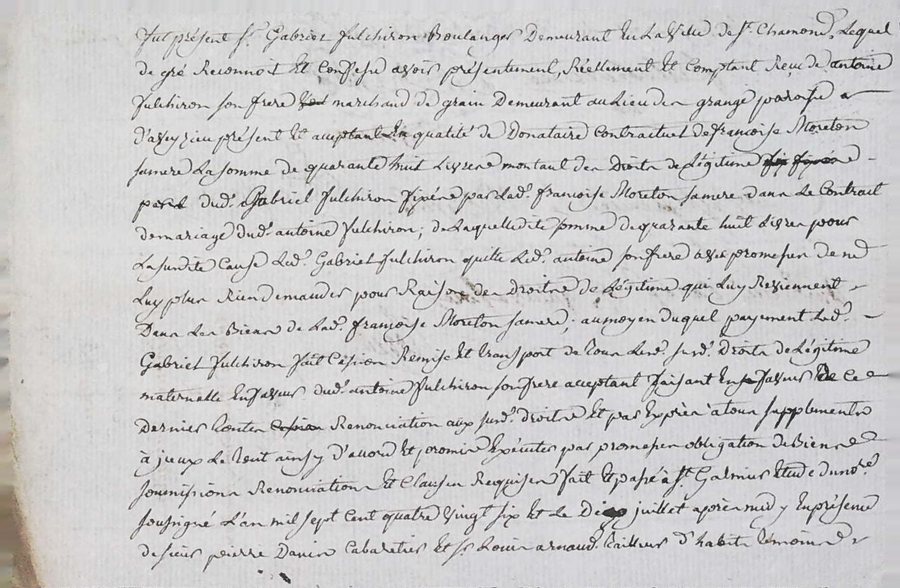 fut présent sr. Gabriel fulchiron boulanger demeurant en la ville de st. Chamond, lequel
de gré Reconnoit et Confesse avoir présentement, Réellement et Comptant Reçu de antoine
fulchiron son frere marchand de grain demeurant au lieu des granges paroisse
d'aveyzieu présent et acceptant en qualité de donataire contractuel de françoise Moreton
sa mere La somme de quarante huit Livres montant des droits de Légitime
dud. Gabriel fulchiron fixée par lad. françoise Moreton sa mere dans le Contrait
de mariage dud. antoine fulchiron; de laquelle dite somme de quarante huit Livres pour
La susdite Cause Led. Gabriel fulchiron quitte Led. antoine son frere avec promesse de ne
Luy plus Rien demander pour Raison des droits de Légitime qui Luy Reviennent
dans Les Biens de Lad. françoise Moreton sa mere; au moyen duquel payement Led.
Gabriel fulchiron fait Cession Remise et transport de tous Lesd. susd. droits de Légitime
maternelle en faveur dud. antoine fulchiron son frere acceptant faisant en faveur de ce
dernier toutes Renonciation aux susd. droits et par exprès à tous supplements
à iceux Le tout ainsy d'accord et promis exécuter par promesses obligation de Biens
soumissions Renonciations et Clauses Requises fait et passé à st. Galmier étude du nore.
soussigné L'an mil sept Cent quatre vingt six et Le juillet après midy en présence
de sieur pierre Cabaretier et sr Louis arnaud tailleur d'habits temoins